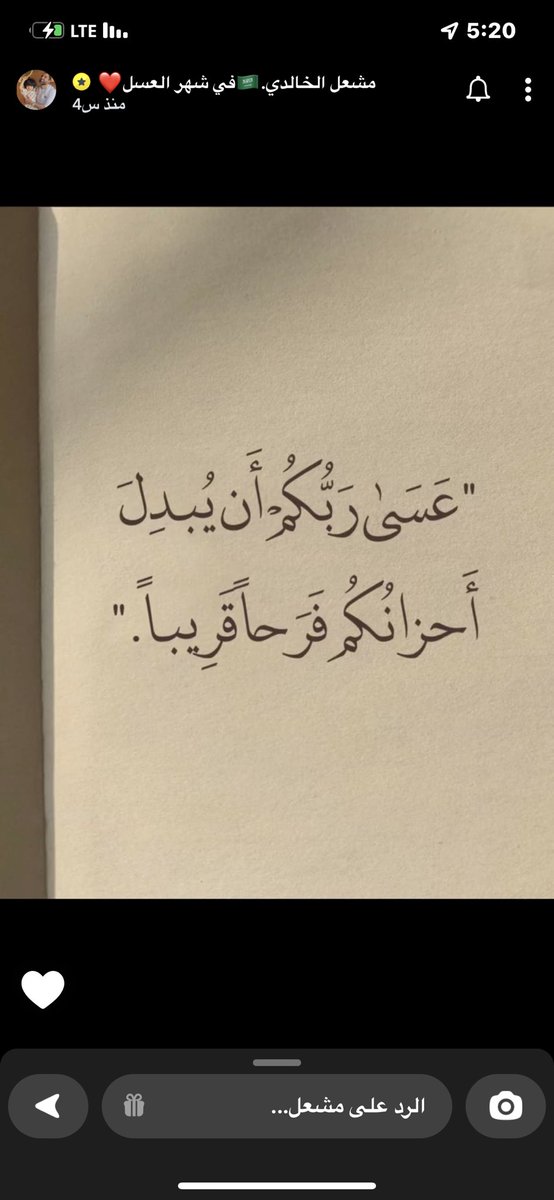 5:20
LTE
مشعل الخالدي.🇸🇦في شهر العسل❤️
منذ س4
"عَسَىٰ رَبُّكُمْ أَن يُبدِلَ
أَحزانُكُم فَرَحاً قَرِيباً."
الرد على مشعل...